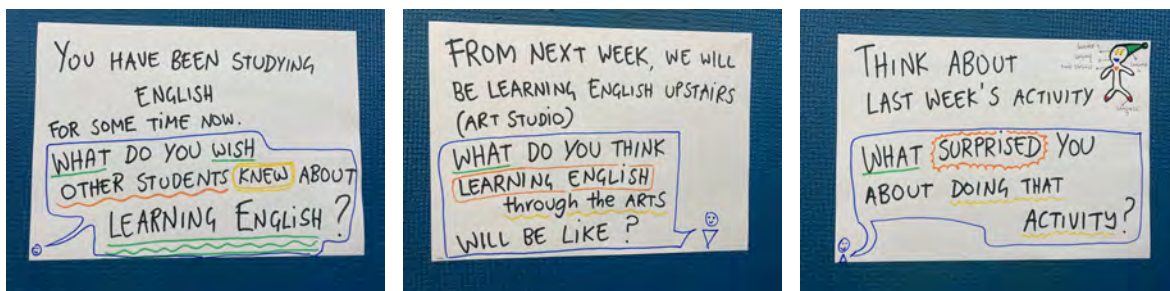 YOU HAVE BEEN STUDYING
ENGLISH
FOR SOME TIME NOW.
WHAT DO YOU WISH
OTHER STUDENTS KNEW ABOUT
LEARNING ENGLISH?
FROM NEXT WEEK, WE WILL
BE LEARNING ENGLISH UPSTAIRS
(ART STUDIO)
WHAT DO YOU THINK
LEARNING ENGLISH
through the ARTS
WILL BE LIKE?
THINK ABOUT
LAST WEEK'S ACTIVITY
WHAT SURPRISED YOU
ABOUT DOING THAT
ACTIVITY?